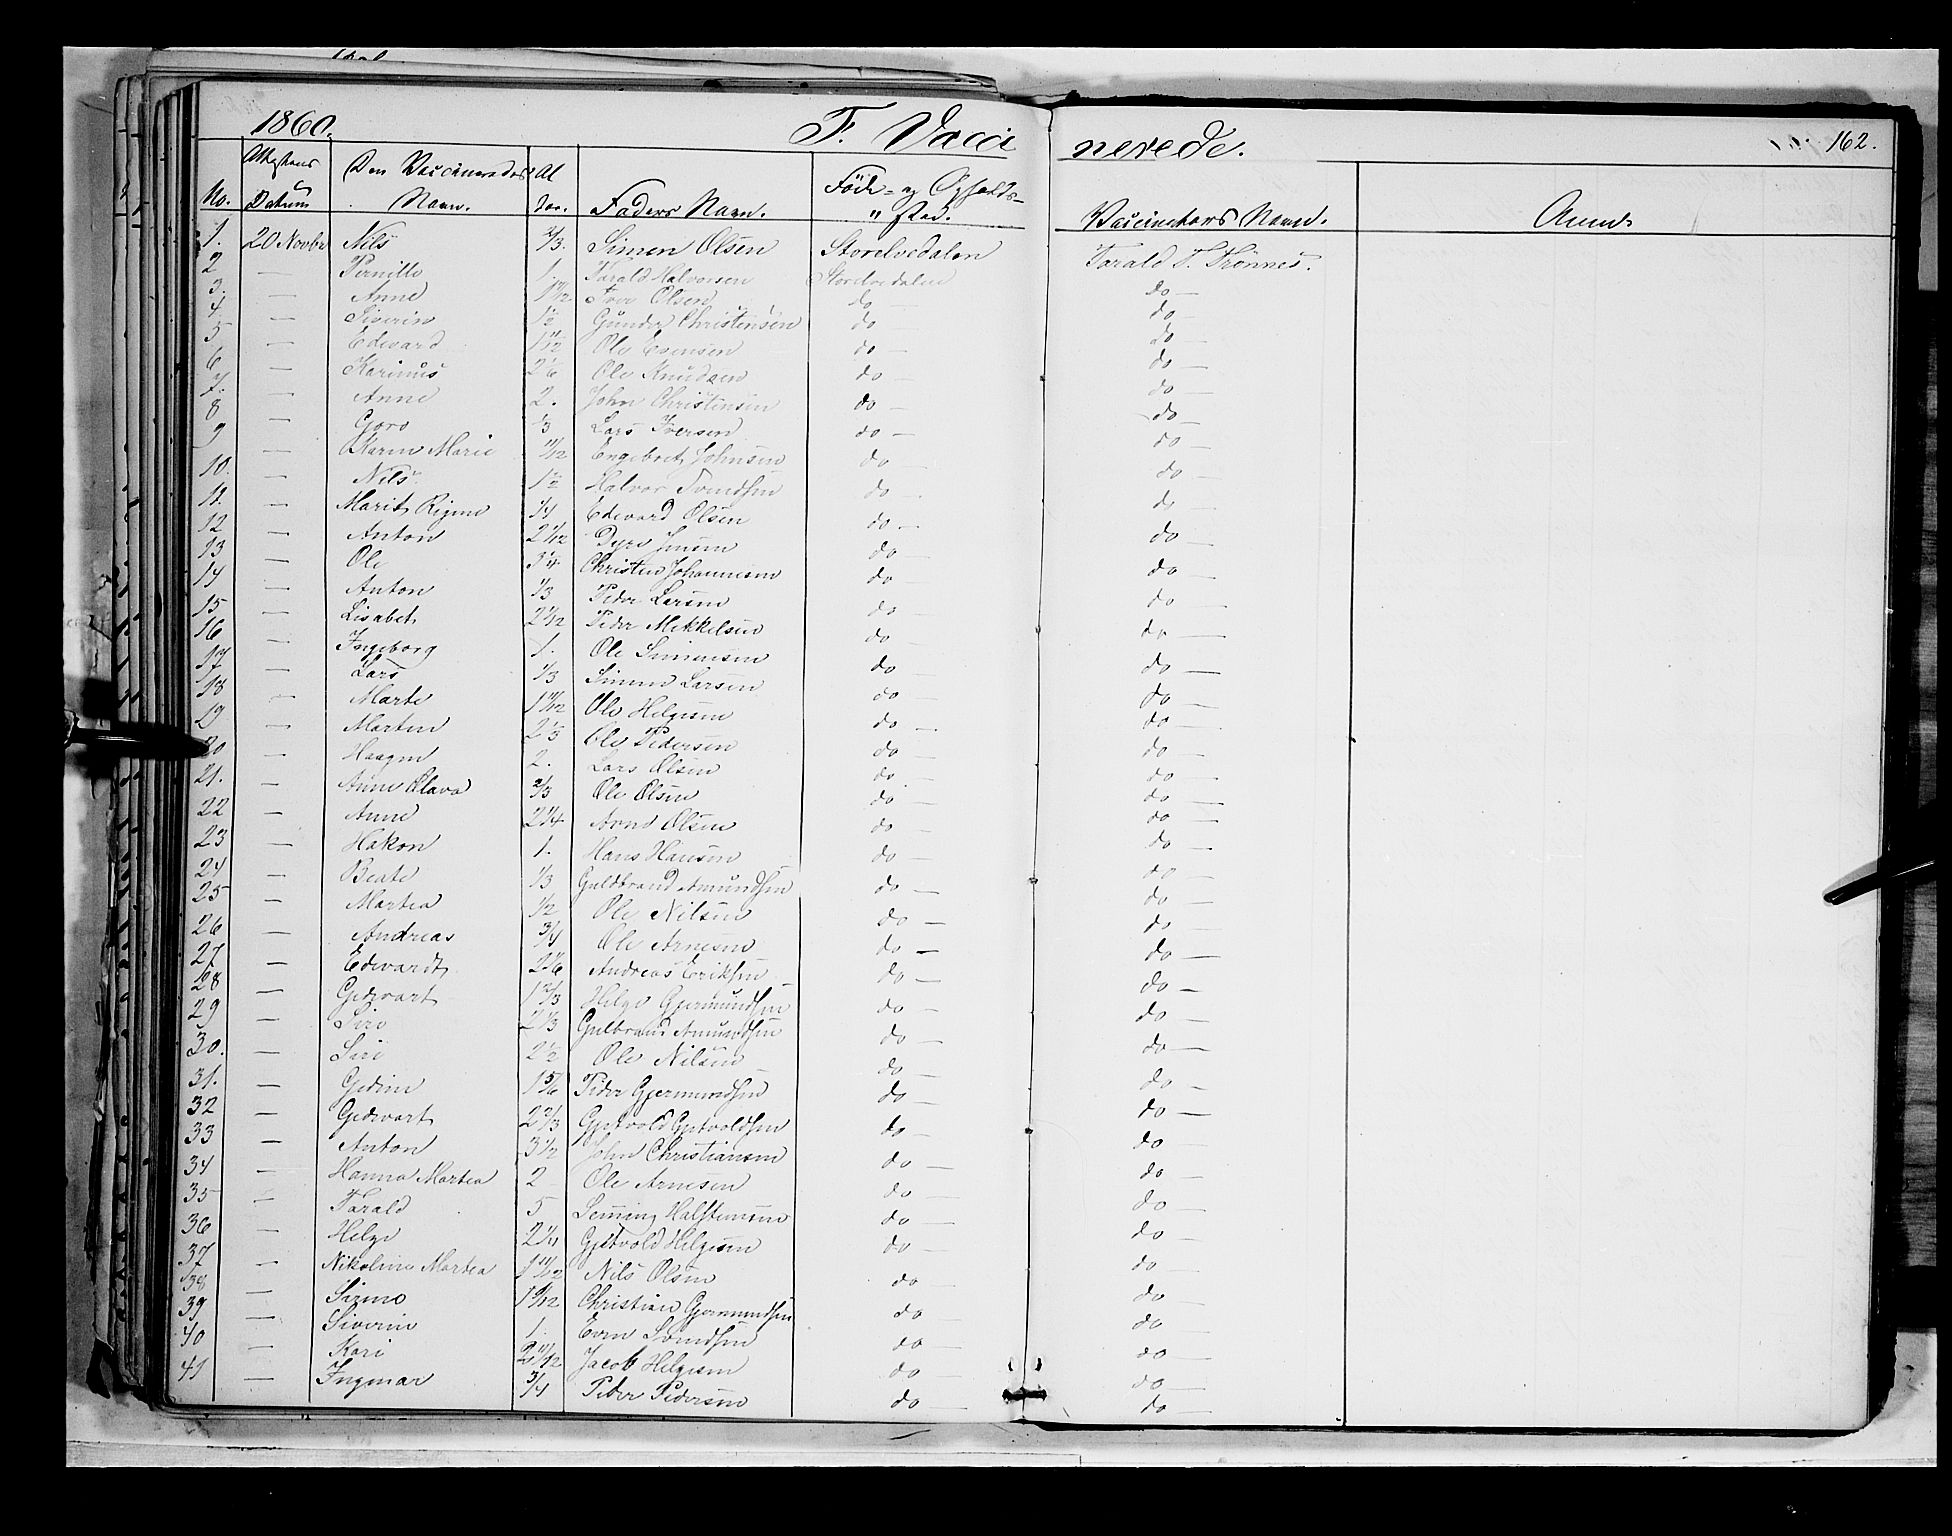 1860. F. Vacci nerede. 162.
No. Attestens Datum Den Vaccineredes Navn. Al der. Faders Navn. Føde- og Opholds- sted. Vaccinators Navn. Anm.
1. 20 Novbr Nils 2/3. Simen Olsen Storelvedalen Tarald T. Trønnes.
2 — Pernille 1. Tarald Halvorsen Storelvedalen do —
3. — Anne Iver Olsen do do —
4. — Siverin 1 1/2 Gunder Christensen do do —
5 — Edevard Ole Evensen do — do —
6 — Karinus 2 1/6 Ole Knudsen do — do —
7. — Anne 2. John Christensen do — do —
8 — Goro 1/3 Lars Iversen do — do —
9 — Karen Marie 11/12 Engebret Johnsen do — do —
10. — Nils 1 1/2 Halvor Svendsen do — do —
11. — Marit Regine Edevard Olsen do — do —
12 — Anton 2 1/12 Dyre do — do —
13 — Ole 3 1/4 Christen Johannesen do — do —
14 — Anton 1/3 Peder Larsen do — do —
15 — Lisabet 2 1/12 Peder Mikkelsen do — do —
16 — Ingeborg 1. Ole Simensen do — do —
17 — Lars 1/3 Simen Larsen do — do —
18 — Marte 1 11/12 Ole Helgesen do — do —
19 — Marten 2 1/3 Ole Pedersen do — do —
20 — Haagen 2. Lars Olsen do — do —
21. — Anne Olava 2/3 Ole Olsen do — do —
22 — Anne 2 1/4 Arne Olsen do — do —
23 — Hakon 1. Hans Hansen do — do —
24 — Beate 1/3 Guldbrand Amundsen do — do —
25 — Martea 1/2 Ole Nilsen do — do —
26 — Andreas 3/4 Ole Arnesen do — do —
27 — Edevardt 2 1/6 Andreas Eriksen do — do —
28 — Gedevart 1 2/3 Helge Gjermundsen do — do —
29 — Siri 2 1/3 Gulbrand Amundsen do — do —
30. — Siri 2 1/2 Ole Nilsen do — do —
31. — Gedine 1 5/6 Peder Gjermundsen do — do —
32 — Gedevart 2 2/3 Gjetvold Gjetvoldsen do — do —
33 — Anton 3 1/2 John Christiansen do — do —
34 — Hanna Martea 2 Ole Arnesen do — do —
35 — Tarald 5 Seming Halstensen do — do —
36 — Helge 2 1/4 Gjetvold Helgesen do — do —
37 — Nikoline Martea 1 11/12 Nils Olsen do — do —
38 — Christian Gjermundsen do — do —
39 — Siverin 1. Even Svendsen do — do —
40 — Kari 2 11/12 Jacob Helgesen do — do —
41 — Ingmar 3/4 Peder Pedersen do — do —